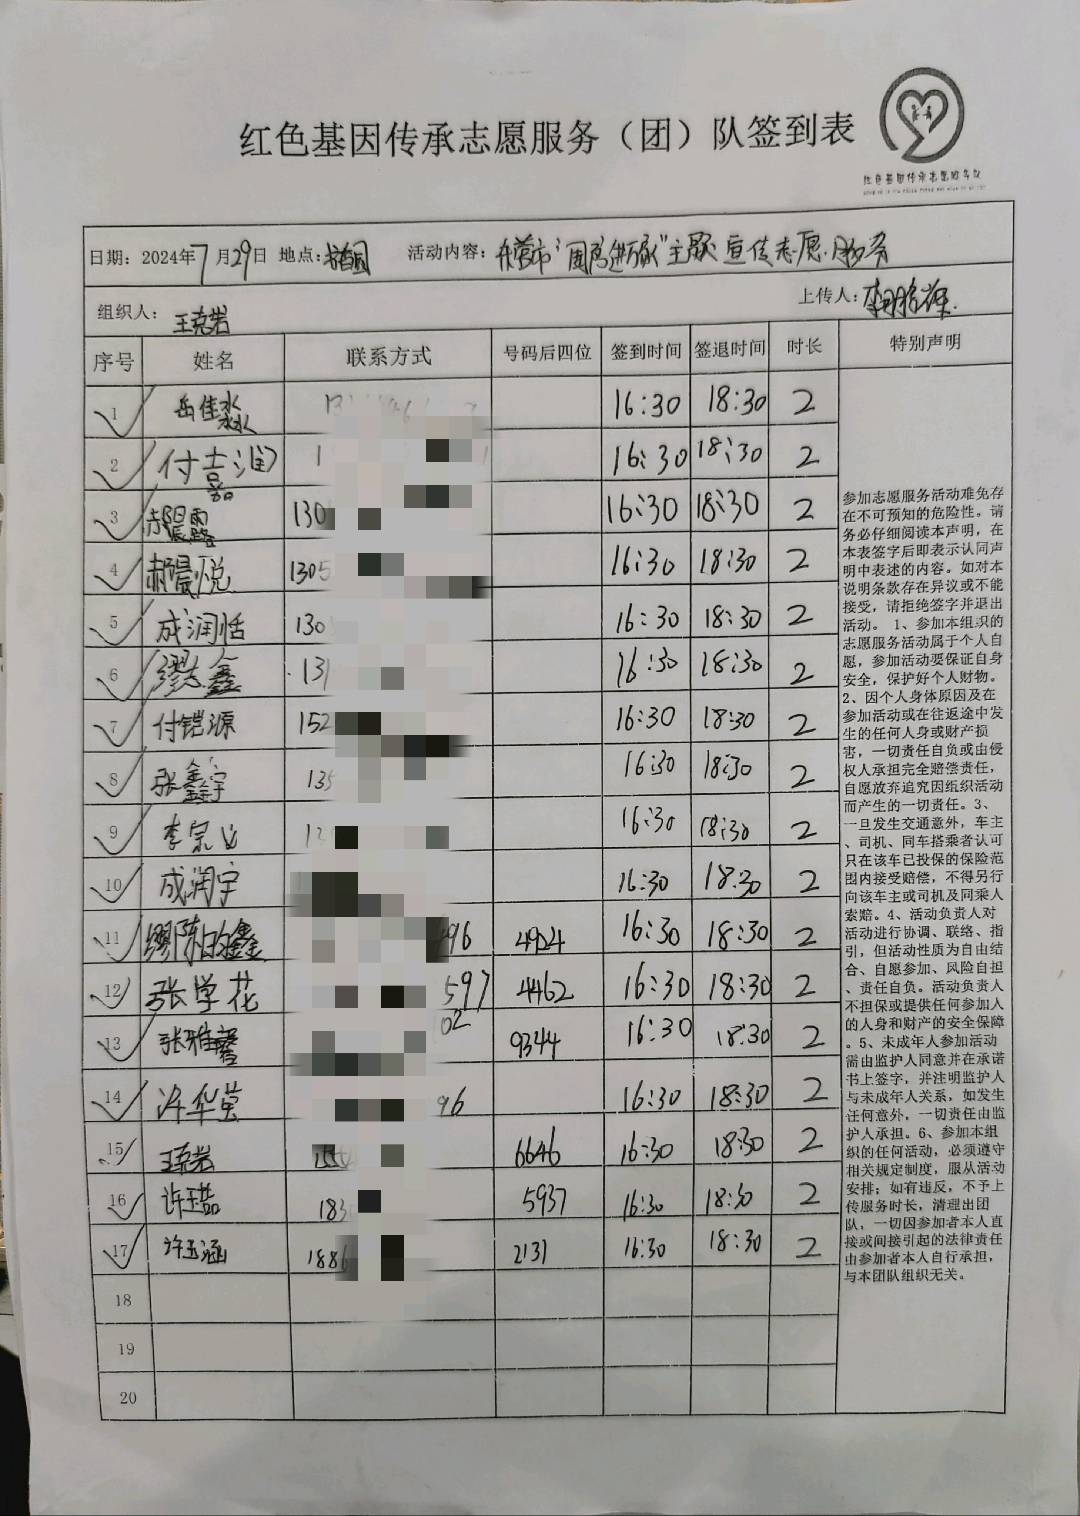 红色基因传承志愿服务（团）队签到表
红色基因传承志愿服务队
日期：2024年7月29日 地点： 活动内容：东营市"主题宣传志愿服务
组织人：王克岩 上传人：
序号 姓名 联系方式 号码后四位 签到时间 签退时间 时长 特别声明
1 岳佳淼 16:30 18:30 2
2 付嘉润 1 16:30 18:30 2
3 郝晨露 130 16:30 18:30 2
4 郝晨悦 1305 16:30 18:30 2
5 成润恬 130 16:30 18:30 2
6 缪志鑫 131 16:30 18:30 2
7 付铠源 152 16:30 18:30 2
8 张鑫宇 135 16:30 18:30 2
9 李宗 16:30 18:30 2
10 成润宇 16:30 18:30 2
11 496 4924 16:30 18:30 2
12 张学花 597 4462 16:30 18:30 2
13 张雅馨 02 9344 16:30 18:30 2
14 许华莹 96 16:30 18:30 2
15 王克岩 6646 16:30 18:30 2
16 许玉喆 183 5937 16:30 18:30 2
17 许玉涵 1886 2131 16:30 18:30 2
18
19
20
参加志愿服务活动难免存
在不可预知的危险性。请
务必仔细阅读本声明，在
本表签字后即表示认同声
明中表述的内容。如对本
说明条款存在异议或不能
接受，请拒绝签字并退出
活动。 1、参加本组织的
志愿服务活动属于个人自
愿，参加活动要保证自身
安全，保护好个人财物。
2、因个人身体原因及在
参加活动或在往返途中发
生的任何人身或财产损
害，一切责任自负或由侵
权人承担完全赔偿责任，
自愿放弃追究因组织活动
而产生的一切责任。3、
一旦发生交通意外，车主
、司机、同车搭乘者认可
只在该车已投保的保险范
围内接受赔偿，不得另行
向该车主或司机及同乘人
索赔。4、活动负责人对
活动进行协调、联络、指
引，但活动性质为自由结
合、自愿参加、风险自担
、责任自负。活动负责人
不担保或提供任何参加人
的人身和财产的安全保障
。5、未成年人参加活动
需由监护人同意并在承诺
书上签字，并注明监护人
与未成年人关系，如发生
任何意外，一切责任由监
护人承担。6、参加本组
织的任何活动，必须遵守
相关规定制度，服从活动
安排；如有违反，不予上
传服务时长，清理出团
队，一切因参加者本人直
接或间接引起的法律责任
由参加者本人自行承担，
与本团队组织无关。